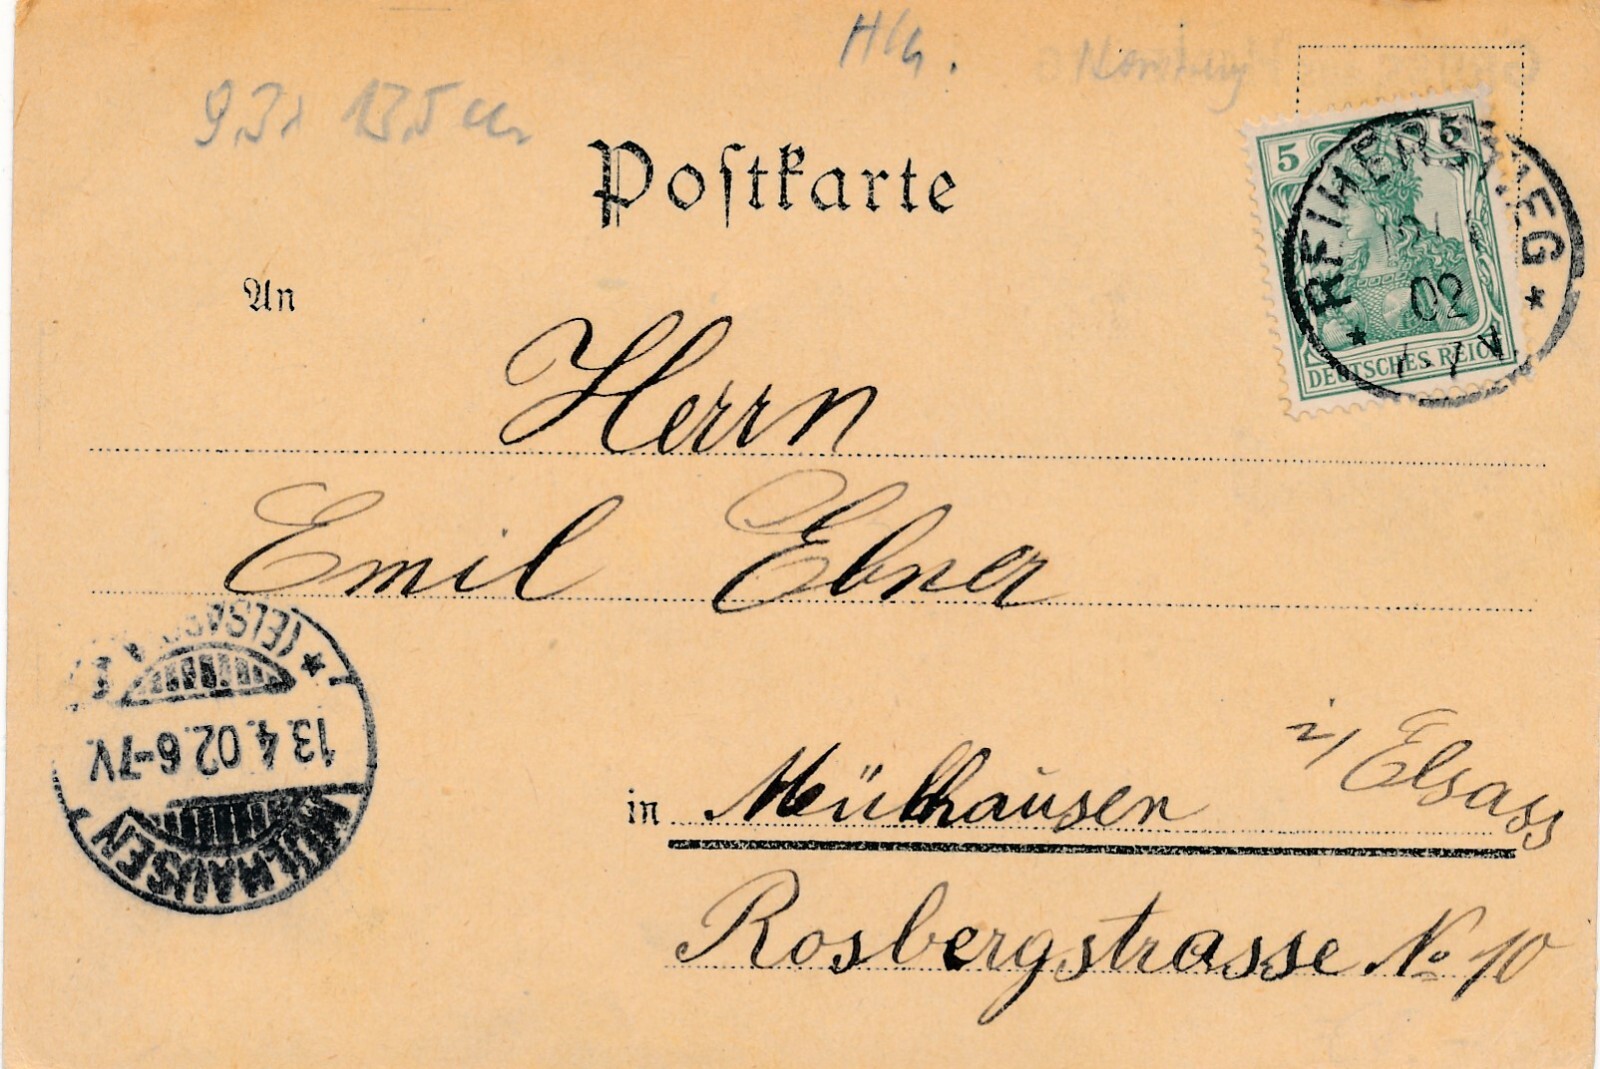 H/G.
9.3 x 13.5 cm
Postkarte
5 5
DEUTSCHES REICH
REIHERSTIEG
02
An
Herrn
Emil Ebner
(ELSASS)
13.4.02.6-7V.
MÜLHAUSEN
in Mülhausen i/ Elsass
Rosbergstrasse No 10